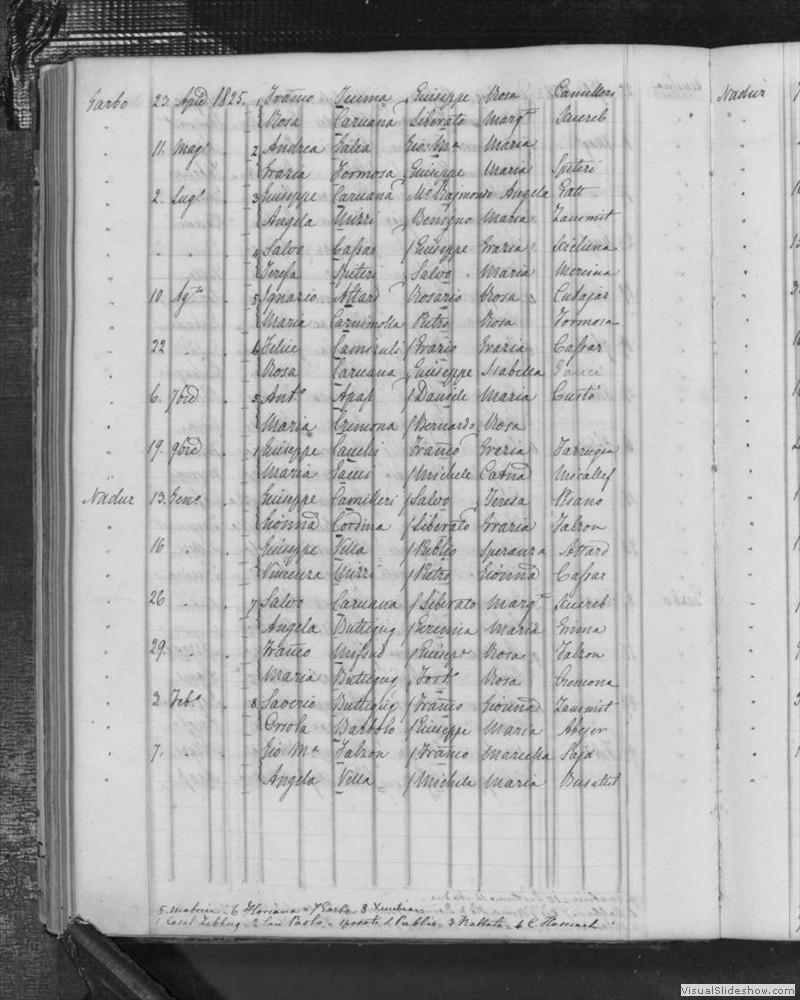 Garbo 23. Aple 1825. 1 Franco Teuma Giuseppe Rosa Camilleri
Rosa Caruana Liberato Margta Xuereb
11. Magо 2 Andrea Galea Gio Ma Maria
Grazia Formosa Giuseppe Maria Spiteri
2. Lugo 3 Giuseppe Caruana Raimondo Angela Gatt
Angela Mizzi Benigno Maria Zammit
4 Salvo Cassar Giuseppe Grazia Scicluna
Teresa Spiteri Salvo Maria
10. Agto 5 Ignazio Attard Rosario Rosa Cutajar
Maria Pietro Rosa Formosa
22 6 Felice Franco Grazia Cassar
Rosa Caruana Giuseppe Isabella Gauci
6. 7bre 5 Anto Apap Daniele Maria Custó
Maria Cremona Bernardo Rosa
19. 9bre 1 Giuseppe Franco Grazia Farrugia
Maria Gauci Michele Catna Micallef
Nadur 13. Geno Giuseppe Camilleri Salvo Teresa Pisano
Gionna Cordina Liberato Grazia Falzon
16 Giuseppe Vella Publio Speranza Attard
Vincenza Mizzi Pietro Gionna Cassar
26 7 Salvo Caruana Liberato Margta Xuereb
Angela Buttigieg Geremia Maria
29. Franco Mifsud Giuseppe Rosa Falzon
Maria Buttigieg Forto Rosa Cremona
2 Febo 8 Saverio Buttigieg Franco Gionna Zammit
Orsola Giuseppe Maria
7. Gio Ma Falzon Franco Marcella Said
Angela Vella Michele Maria Busuttil
5. 6 Floriana - 7 Garbo 8
1 Casal Zebbug 2 San Paolo 3
Nadur
VisualSlideshow.com